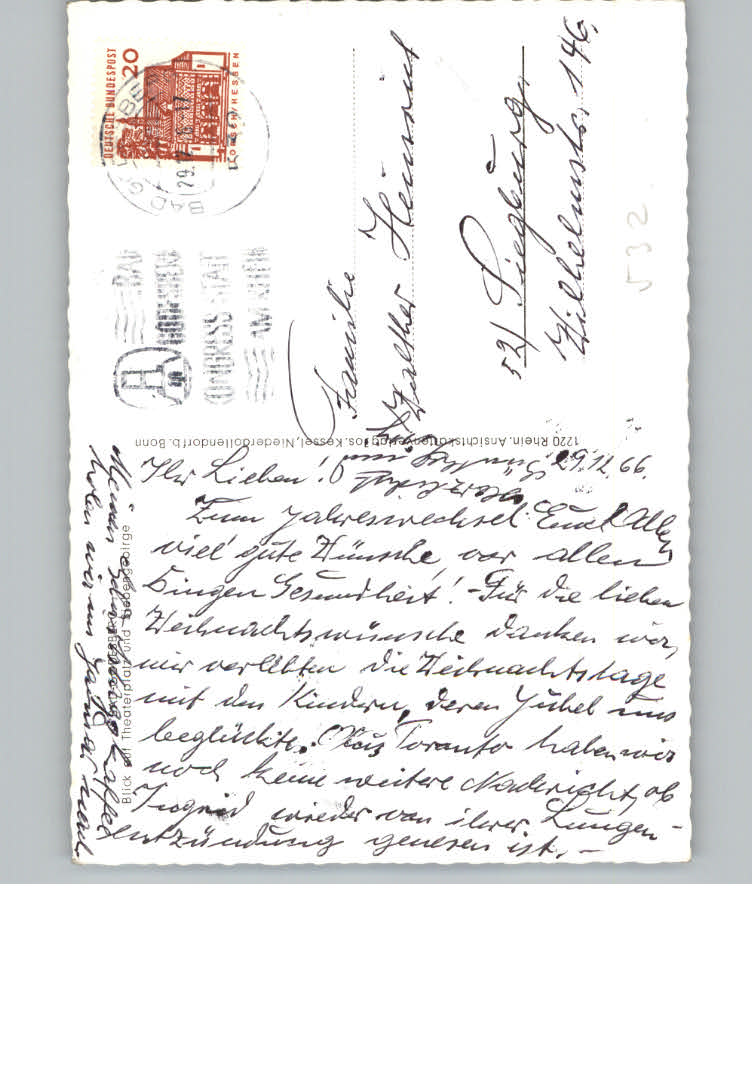 29.12.66.
Ihr Lieben!
Zum Jahreswechsel Euch Allen
viel gute Wünsche, vor allen
Dingen Gesundheit! - Für die lieben
Weihnachtswünsche danken wir,
wir verlebten die Weihnachtstage
mit den Kindern, deren Jubel uns
beglückte. Aus Toronto haben wir
noch keine weitere Nachricht, ob
Ingrid wieder von ihrer Lungen-
entzündung genesen ist. -
holen wir im Januar nach
Blick auf Theaterplatz und Siebengebirge
1220 Rhein. Ansichtskartenverlag Jos. Kessel, Niederdollendorf b. Bonn
DEUTSCHE BUNDESPOST
20
LORSCH/HESSEN
BAD GODESBERG
29.12.66-17
BAD
GODESBERG
KONGRESS-STADT
AM RHEIN
Familie
Walther Heinrich
521 Siegburg
Wilhelmstr. 146.
532